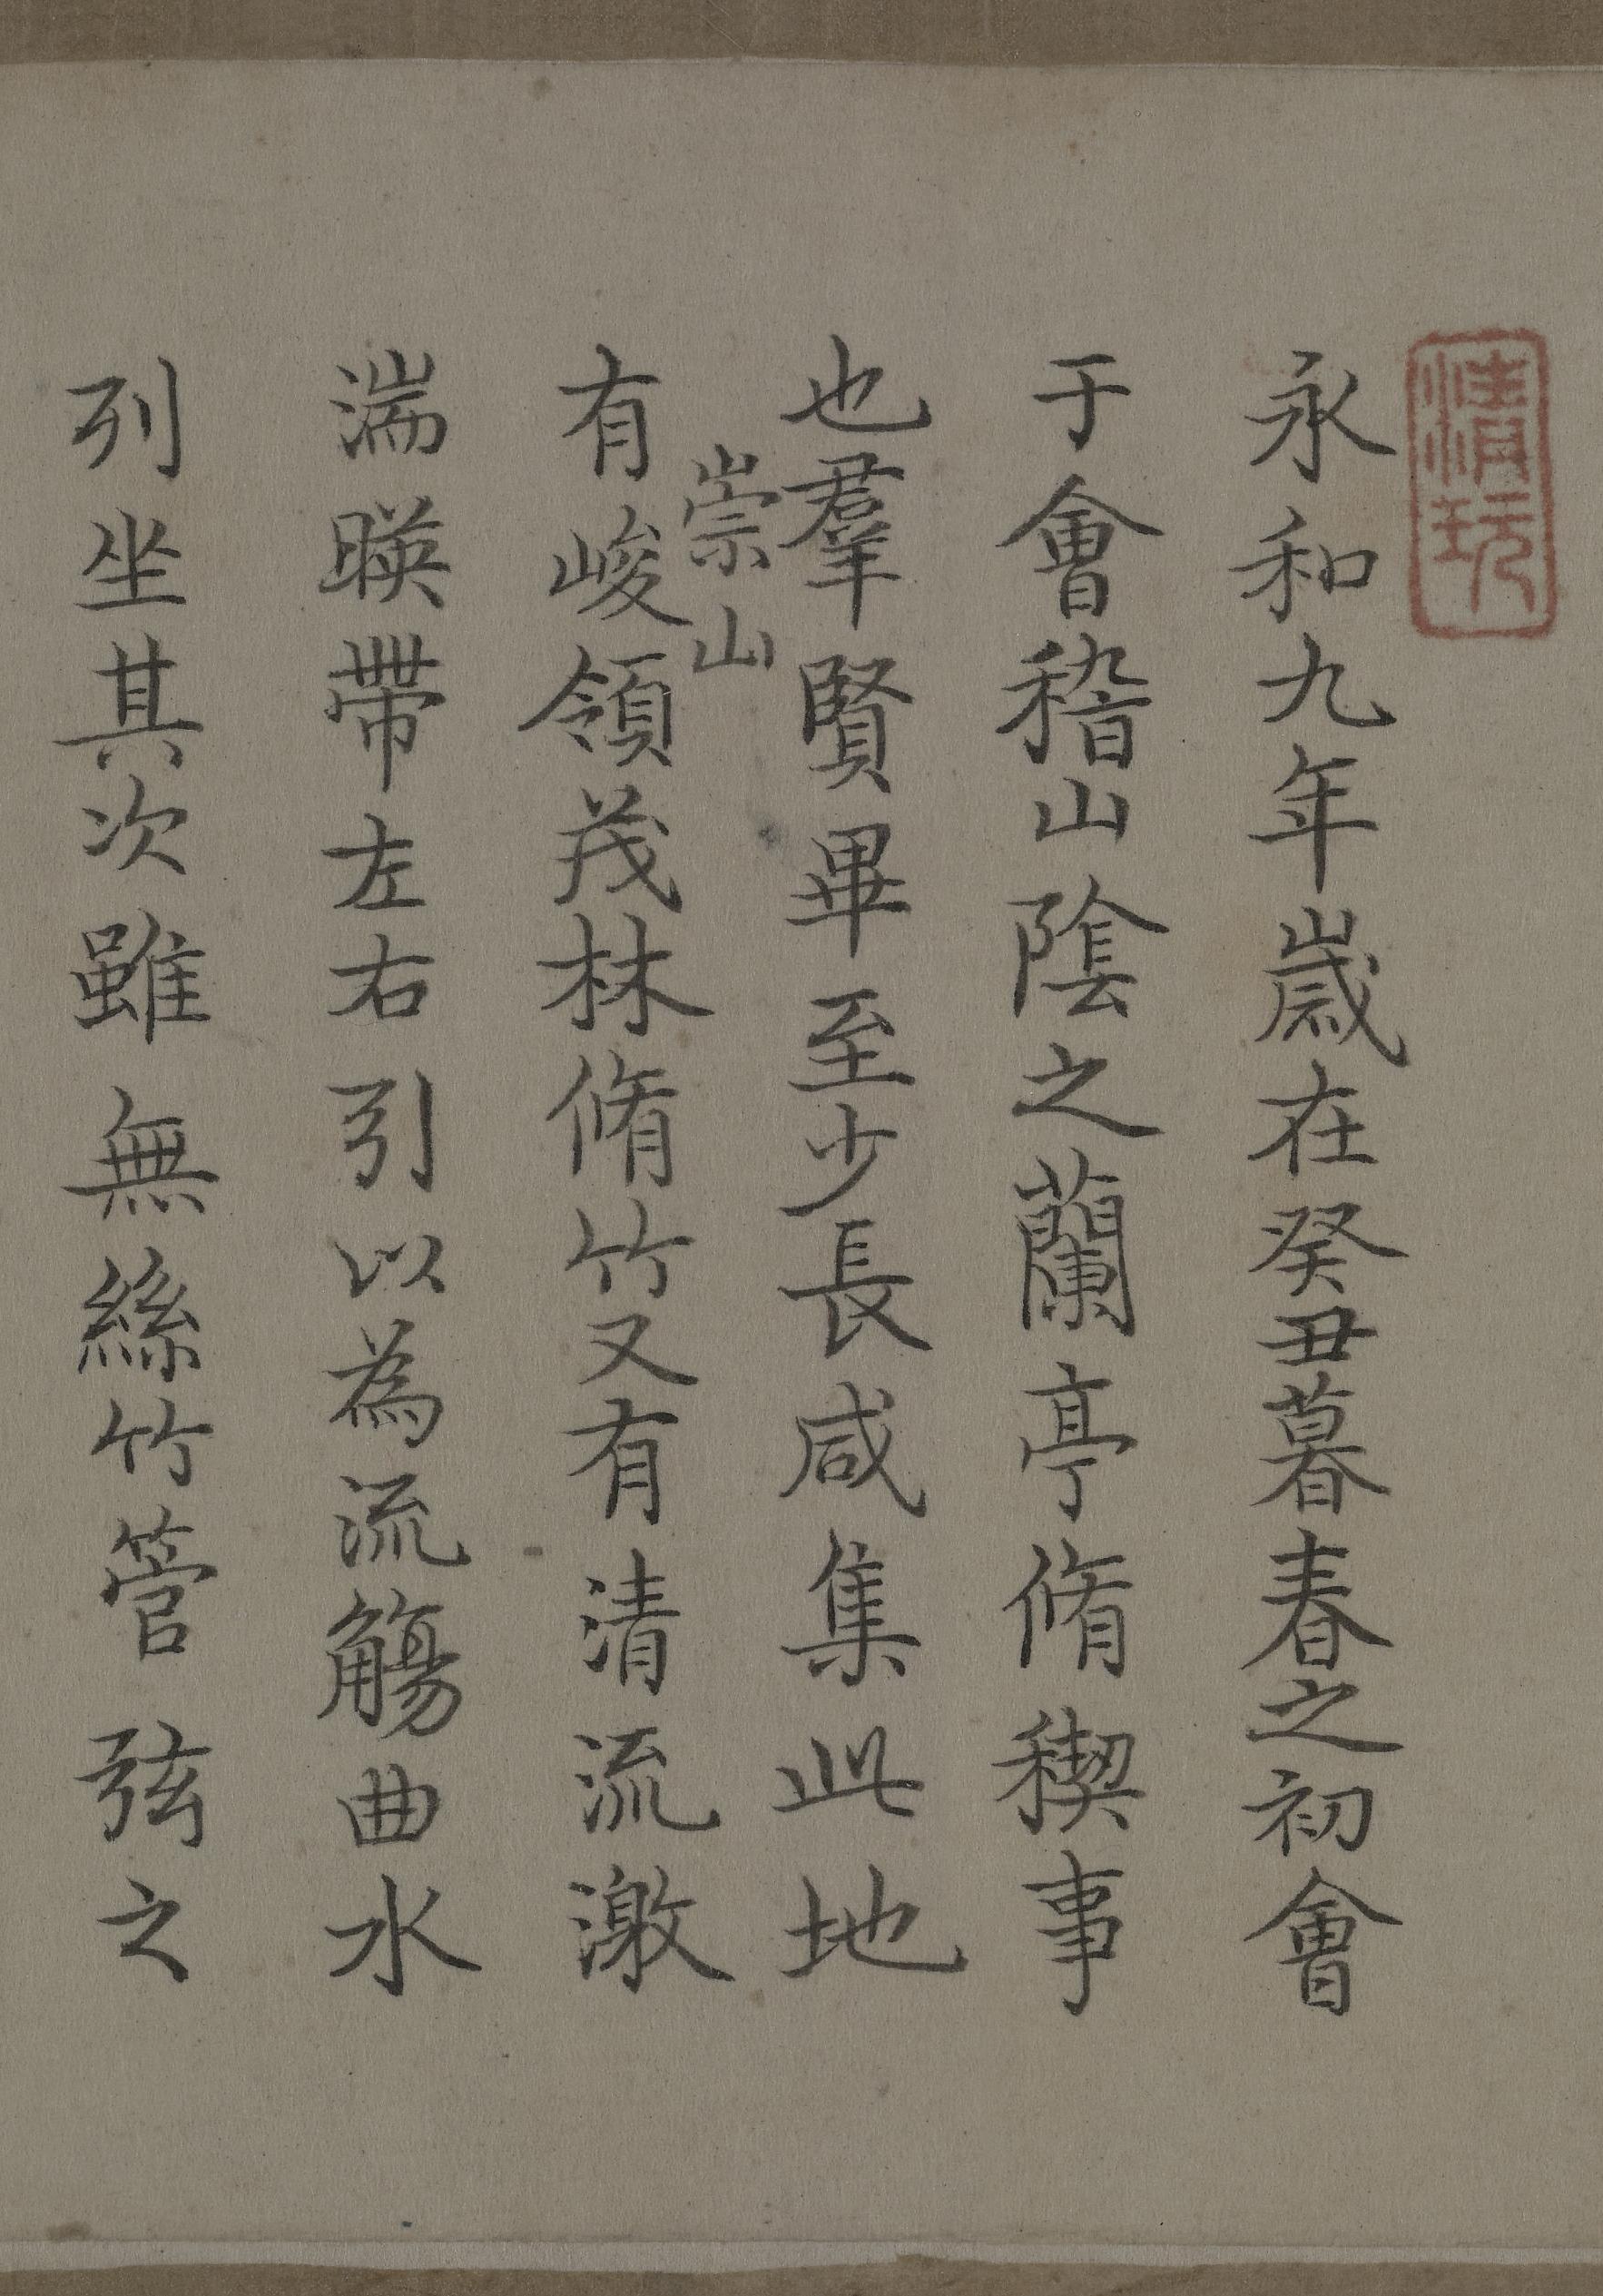 清玩
永和九年歲在癸丑暮春之初會
于會稽山陰之蘭亭脩稧事
也羣賢畢至少長咸集此地
崇山
有峻領茂林脩竹又有清流激
湍暎帶左右引以為流觴曲水
列坐其次雖無絲竹管弦之